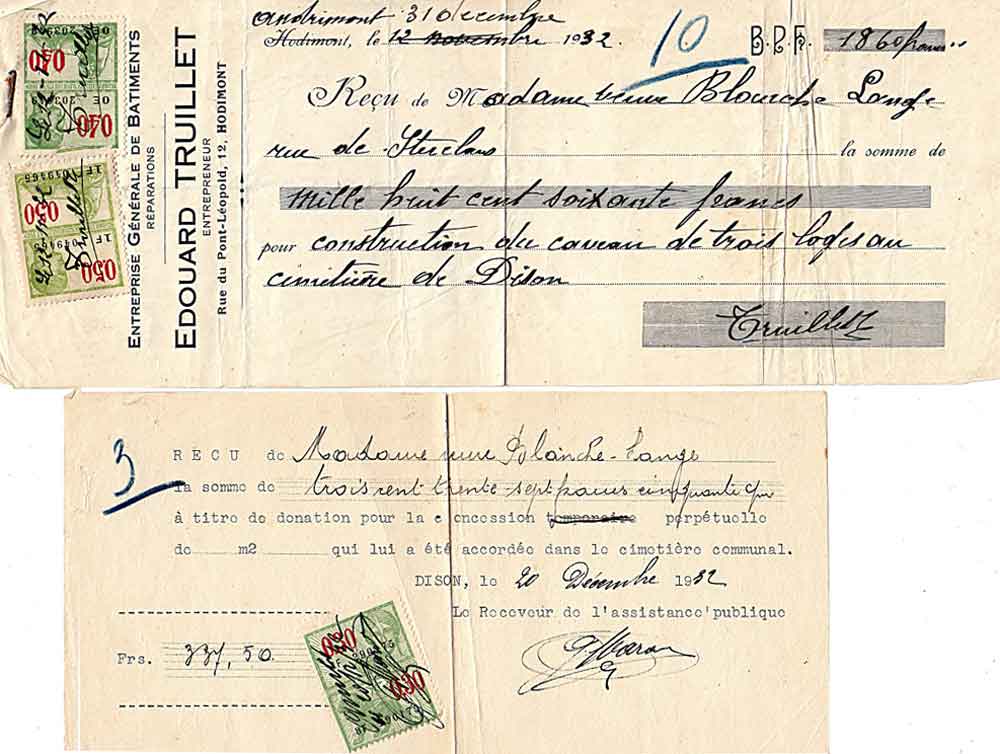 ENTREPRISE GÉNÉRALE DE BATIMENTS
RÉPARATIONS
EDOUARD TRUILLET
ENTREPRENEUR
Rue du Pont-Léopold, 12, HODIMONT
0,40
0,40
0,50
0,50
Andrimont 31 decembre
Hodimont, le 12 novembre 1932.
10
B.P.F. 1860 francs
Reçu de Madame veuve Blanche Lange
rue de
la somme de
Mille huit cent soixante francs
pour construction du caveau de trois loges au
cimetière de Dison
Truillet
3
REÇU de Madame veuve Blanche-Lange
la somme de trois cent trente-sept francs cinquante
à titre de donation pour la concession temporaire perpétuelle
de m2 qui lui a été accordée dans le cimetière communal.
DISON, le 20 Décembre 1932
Le Receveur de l'assistance publique
Frs. 337,50.